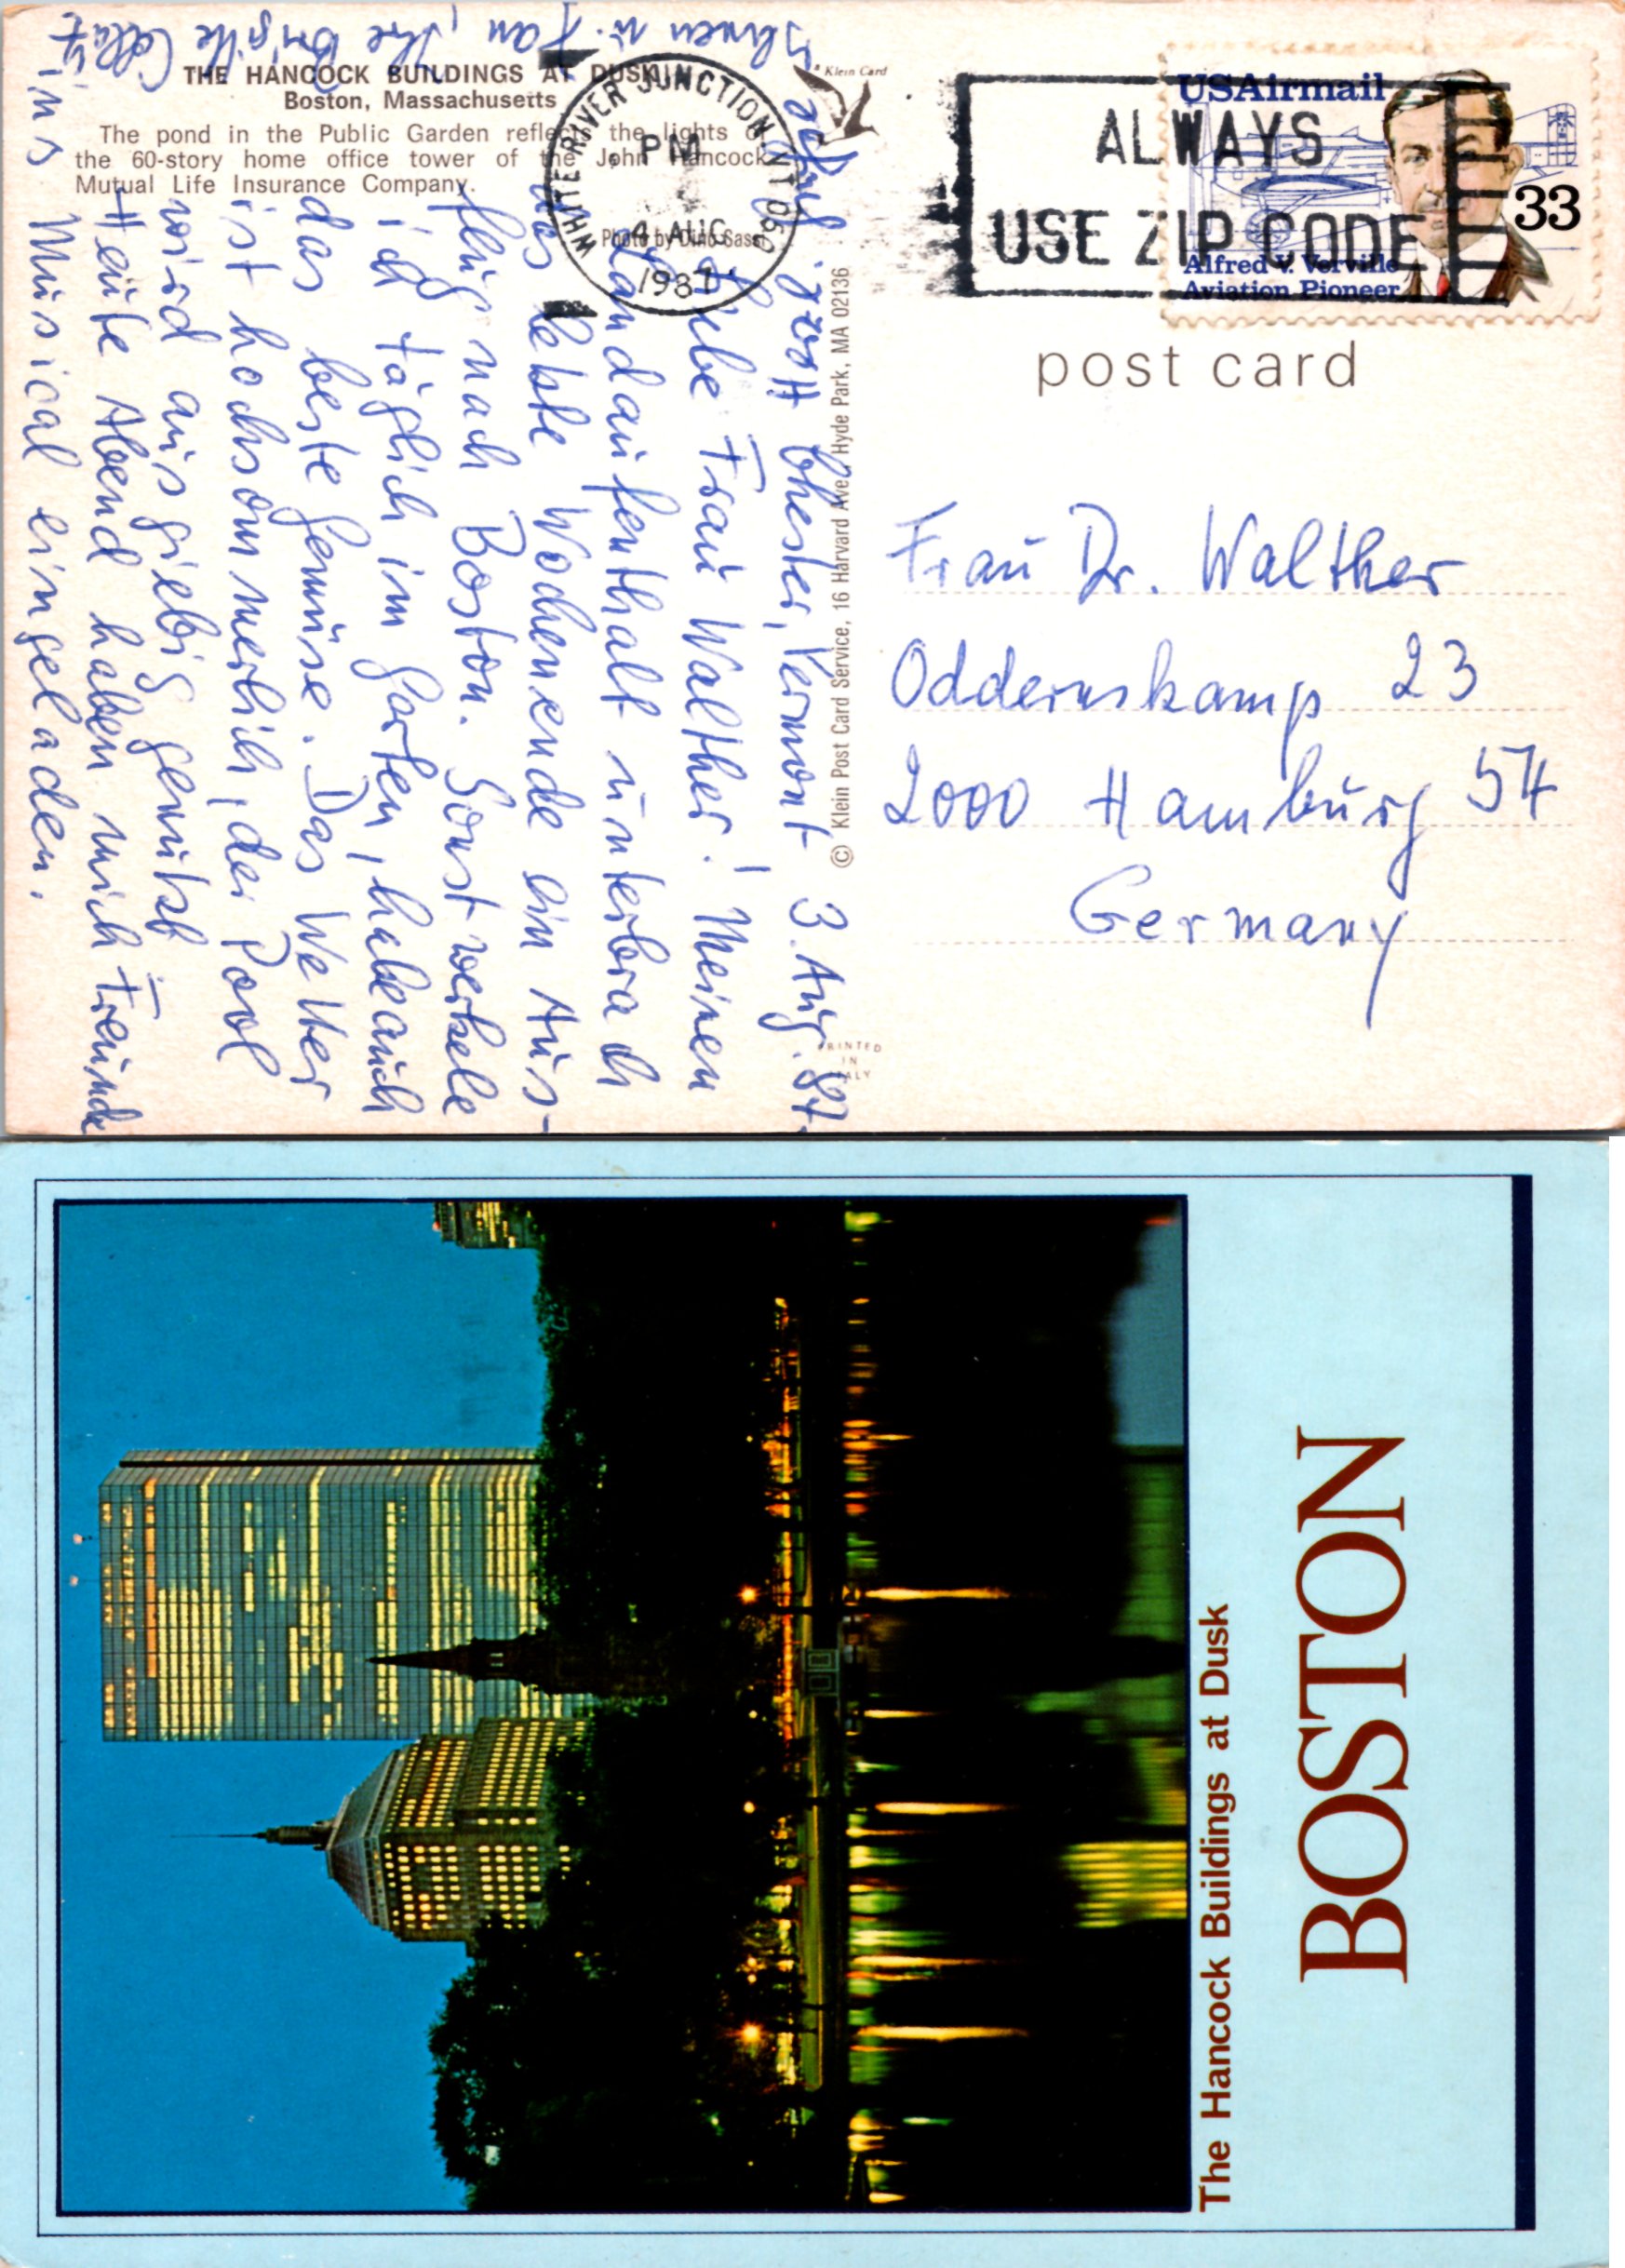 THE HANCOCK BUILDINGS AT DUSK
Boston, Massachusetts
The pond in the Public Garden reflects the lights of
the 60-story home office tower of the John Hancock
Mutual Life Insurance Company.
Photo by Dino Sassi
Klein Card
© Klein Post Card Service, 16 Harvard Ave., Hyde Park, MA 02136
PRINTED
IN
ITALY
WHITE RIVER JUNCTION, VT 050
PM
4 AUG
1987
ALWAYS
USE ZIP CODE
USAirmail
33
Alfred V. Verville
Aviation Pioneer
post card
Frau Dr. Walther
Oddernskamp 23
2000 Hamburg 54
Germany
North Chester, Vermont 3. Aug. 87
Liebe Frau Walther! Meinen
Landaufenthalt unterbrach
das letzte Wochenende ein Aus-
flug nach Boston. Sonst werkele
ich täglich im Garten, habe auch
das beste Gemüse. Das Wetter
ist hochsommerlich, der Pool
wird ausgiebig genutzt.
Heute Abend haben mich Freunde
ins Musical eingeladen.
Ihre Brigitte
The Hancock Buildings at Dusk
BOSTON